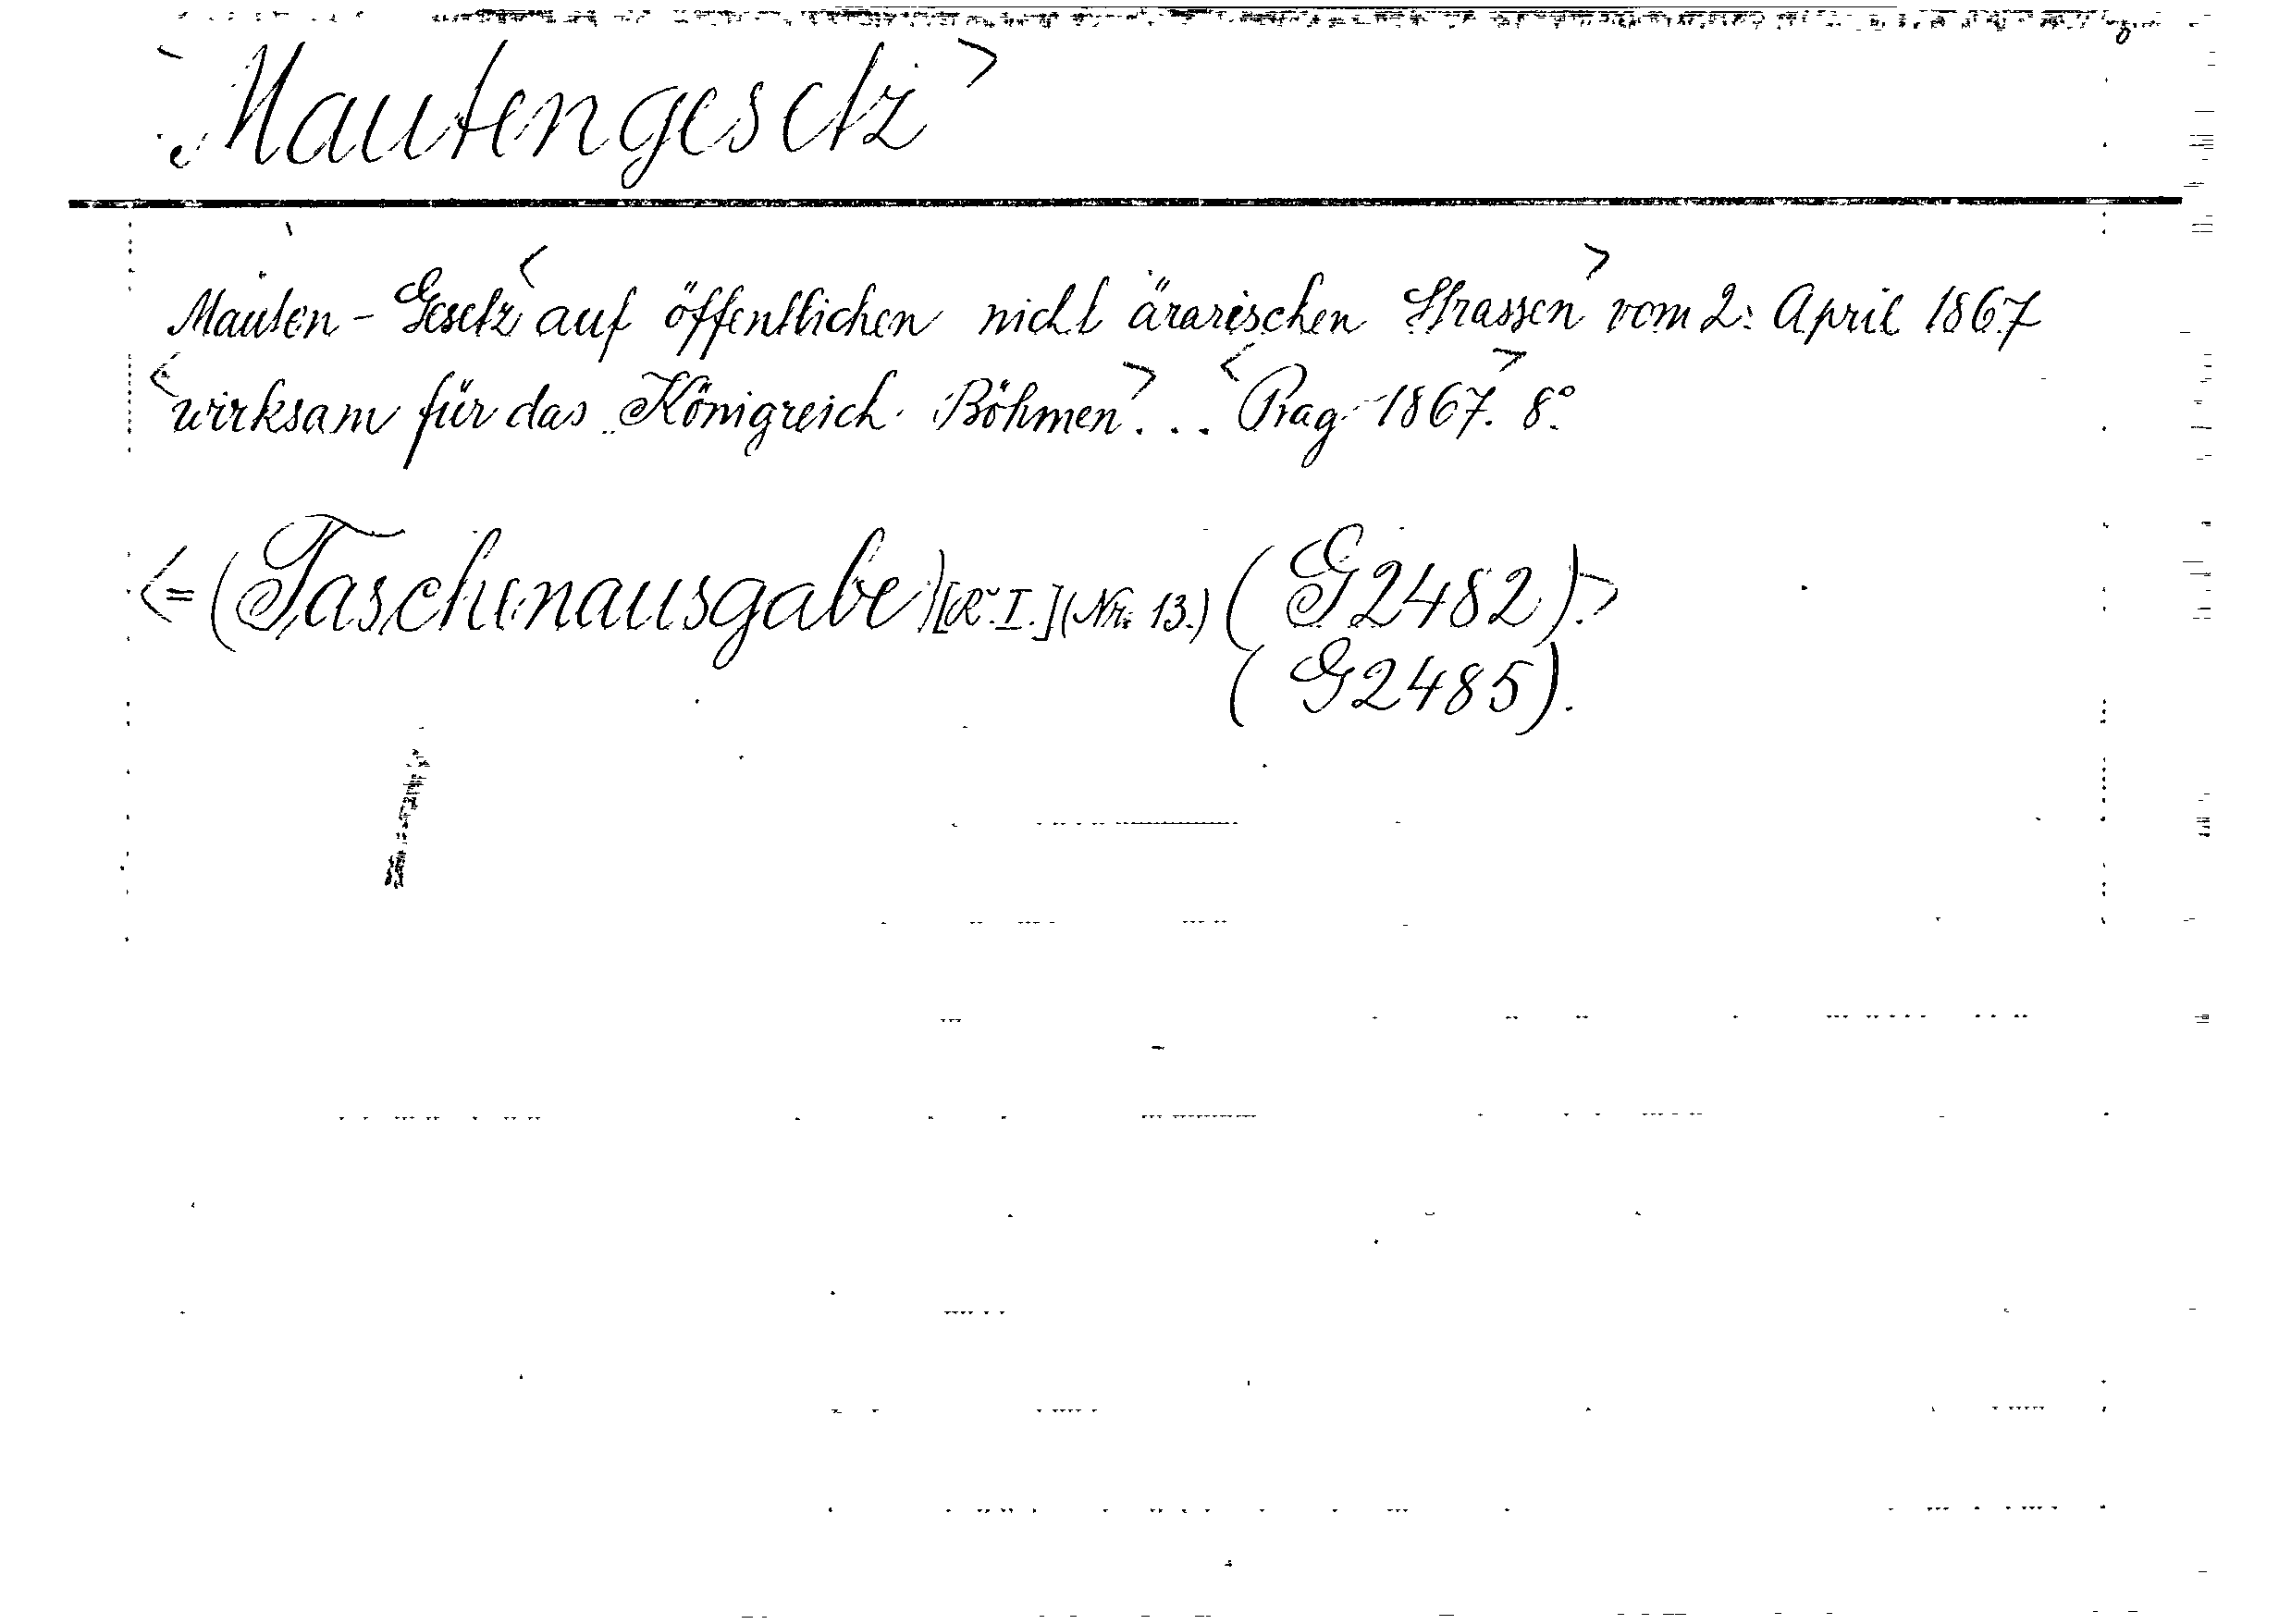 <Mautengesetz>
Mauten-Gesetz <auf öffentlichen nicht ärarischen Strassen> vom 2. April 1867
<wirksam für das Königreich Böhmen>... <Prag 1867.> 8°.
<=(Taschenausgabe)[Ř.I.](Nr. 13.) (G2482).>
(G2485).